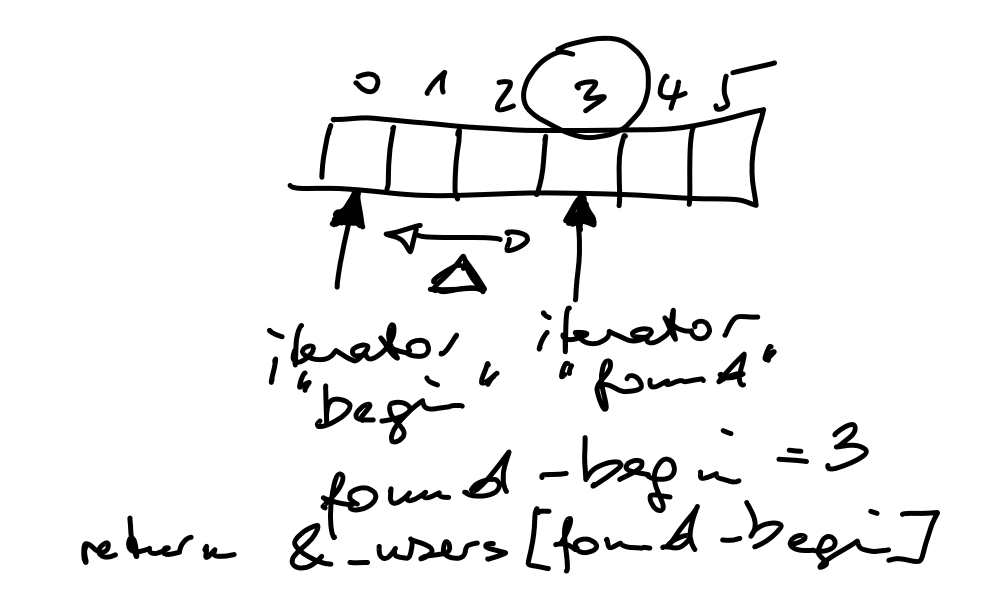 0 1 2 3 4 5
Δ
iterator iterator
"begin" "found"
found - begin = 3
return &_users[found - begin]